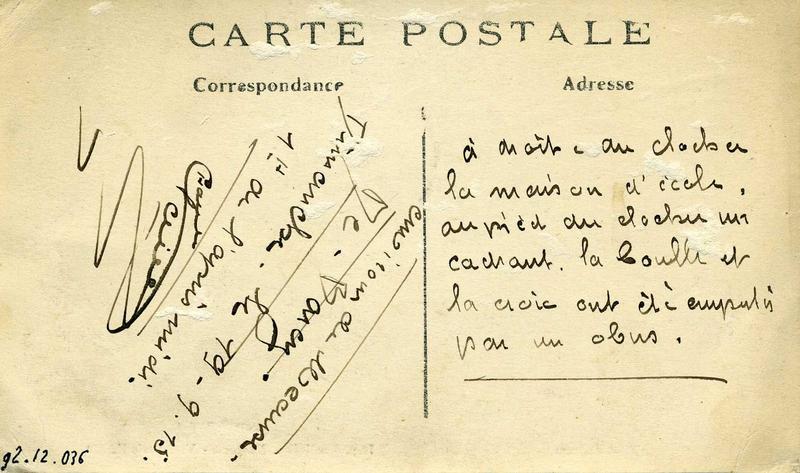 CARTE POSTALE
Correspondance
Adresse
Dimanche. le 19-9.15.
1H de l'après midi.
environs de
à droite du clocher
la maison d'école,
au pied du clocher un
cadrant. la boulle et
la croix ont été emputés
par un obus.
92.12.036